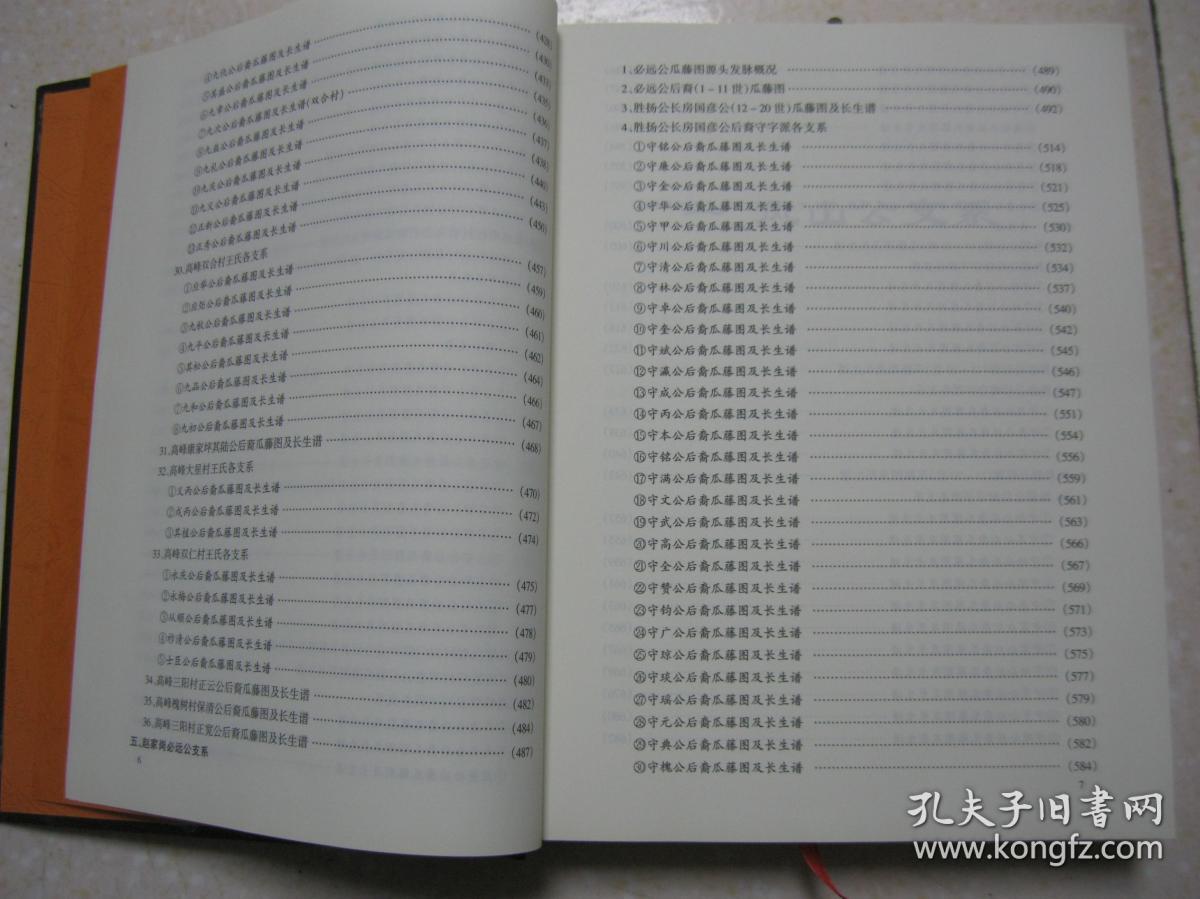 ④九代公后裔瓜藤图及长生谱 (428)
⑤其盛公后裔瓜藤图及长生谱 (430)
⑥九章公后裔瓜藤图及长生谱 (433)
⑦九次公后裔瓜藤图及长生谱(双合村) (435)
⑧九益公后裔瓜藤图及长生谱 (436)
⑨九礼公后裔瓜藤图及长生谱 (437)
⑩九庆公后裔瓜藤图及长生谱 (438)
⑪九义公后裔瓜藤图及长生谱 (440)
⑫正新公后裔瓜藤图及长生谱 (443)
⑬正秀公后裔瓜藤图及长生谱 (450)
30、高峰双合村王氏各支系
①应举公后裔瓜藤图及长生谱 (457)
②应炬公后裔瓜藤图及长生谱 (459)
③九秋公后裔瓜藤图及长生谱 (460)
④九平公后裔瓜藤图及长生谱 (461)
⑤其松公后裔瓜藤图及长生谱 (462)
⑥九品公后裔瓜藤图及长生谱 (464)
⑦九和公后裔瓜藤图及长生谱 (466)
⑧九初公后裔瓜藤图及长生谱 (467)
31、高峰康家坪其陆公后裔瓜藤图及长生谱 (468)
32、高峰大屋村王氏各支系
①义两公后裔瓜藤图及长生谱 (470)
②戊两公后裔瓜藤图及长生谱 (472)
③其植公后裔瓜藤图及长生谱 (474)
33、高峰双仁村王氏各支系
①永庆公后裔瓜藤图及长生谱 (475)
②永梅公后裔瓜藤图及长生谱 (477)
③从顺公后裔瓜藤图及长生谱 (478)
④祚清公后裔瓜藤图及长生谱 (479)
⑤士豆公后裔瓜藤图及长生谱 (480)
34、高峰三阳村正云公后裔瓜藤图及长生谱 (482)
35、高峰槐树村保清公后裔瓜藤图及长生谱 (484)
36、高峰三阳村正宽公后裔瓜藤图及长生谱 (487)
五、赵家岗必远公支系
6
1、必远公瓜藤图源头发脉概况 (489)
2、必远公后裔(1－11世)瓜藤图 (490)
3、胜扬公长房国彦公(12－20世)瓜藤图及长生谱 (492)
4、胜扬公长房国彦公后裔守字派各支系
①守铭公后裔瓜藤图及长生谱 (514)
②守廉公后裔瓜藤图及长生谱 (518)
③守金公后裔瓜藤图及长生谱 (521)
④守华公后裔瓜藤图及长生谱 (525)
⑤守甲公后裔瓜藤图及长生谱 (530)
⑥守川公后裔瓜藤图及长生谱 (532)
⑦守清公后裔瓜藤图及长生谱 (534)
⑧守林公后裔瓜藤图及长生谱 (537)
⑨守卓公后裔瓜藤图及长生谱 (540)
⑩守奎公后裔瓜藤图及长生谱 (542)
⑪守斌公后裔瓜藤图及长生谱 (545)
⑫守瀛公后裔瓜藤图及长生谱 (546)
⑬守成公后裔瓜藤图及长生谱 (547)
⑭守丙公后裔瓜藤图及长生谱 (551)
⑮守本公后裔瓜藤图及长生谱 (554)
⑯守铭公后裔瓜藤图及长生谱 (556)
⑰守满公后裔瓜藤图及长生谱 (559)
⑱守文公后裔瓜藤图及长生谱 (561)
⑲守武公后裔瓜藤图及长生谱 (563)
⑳守高公后裔瓜藤图及长生谱 (566)
㉑守全公后裔瓜藤图及长生谱 (567)
㉒守赞公后裔瓜藤图及长生谱 (569)
㉓守钧公后裔瓜藤图及长生谱 (571)
㉔守广公后裔瓜藤图及长生谱 (573)
㉕守琼公后裔瓜藤图及长生谱 (575)
㉖守琰公后裔瓜藤图及长生谱 (577)
㉗守瑶公后裔瓜藤图及长生谱 (579)
㉘守元公后裔瓜藤图及长生谱 (580)
㉙守典公后裔瓜藤图及长生谱 (582)
㉚守槐公后裔瓜藤图及长生谱 (584)
7
孔夫子旧书网
www.kongfz.com